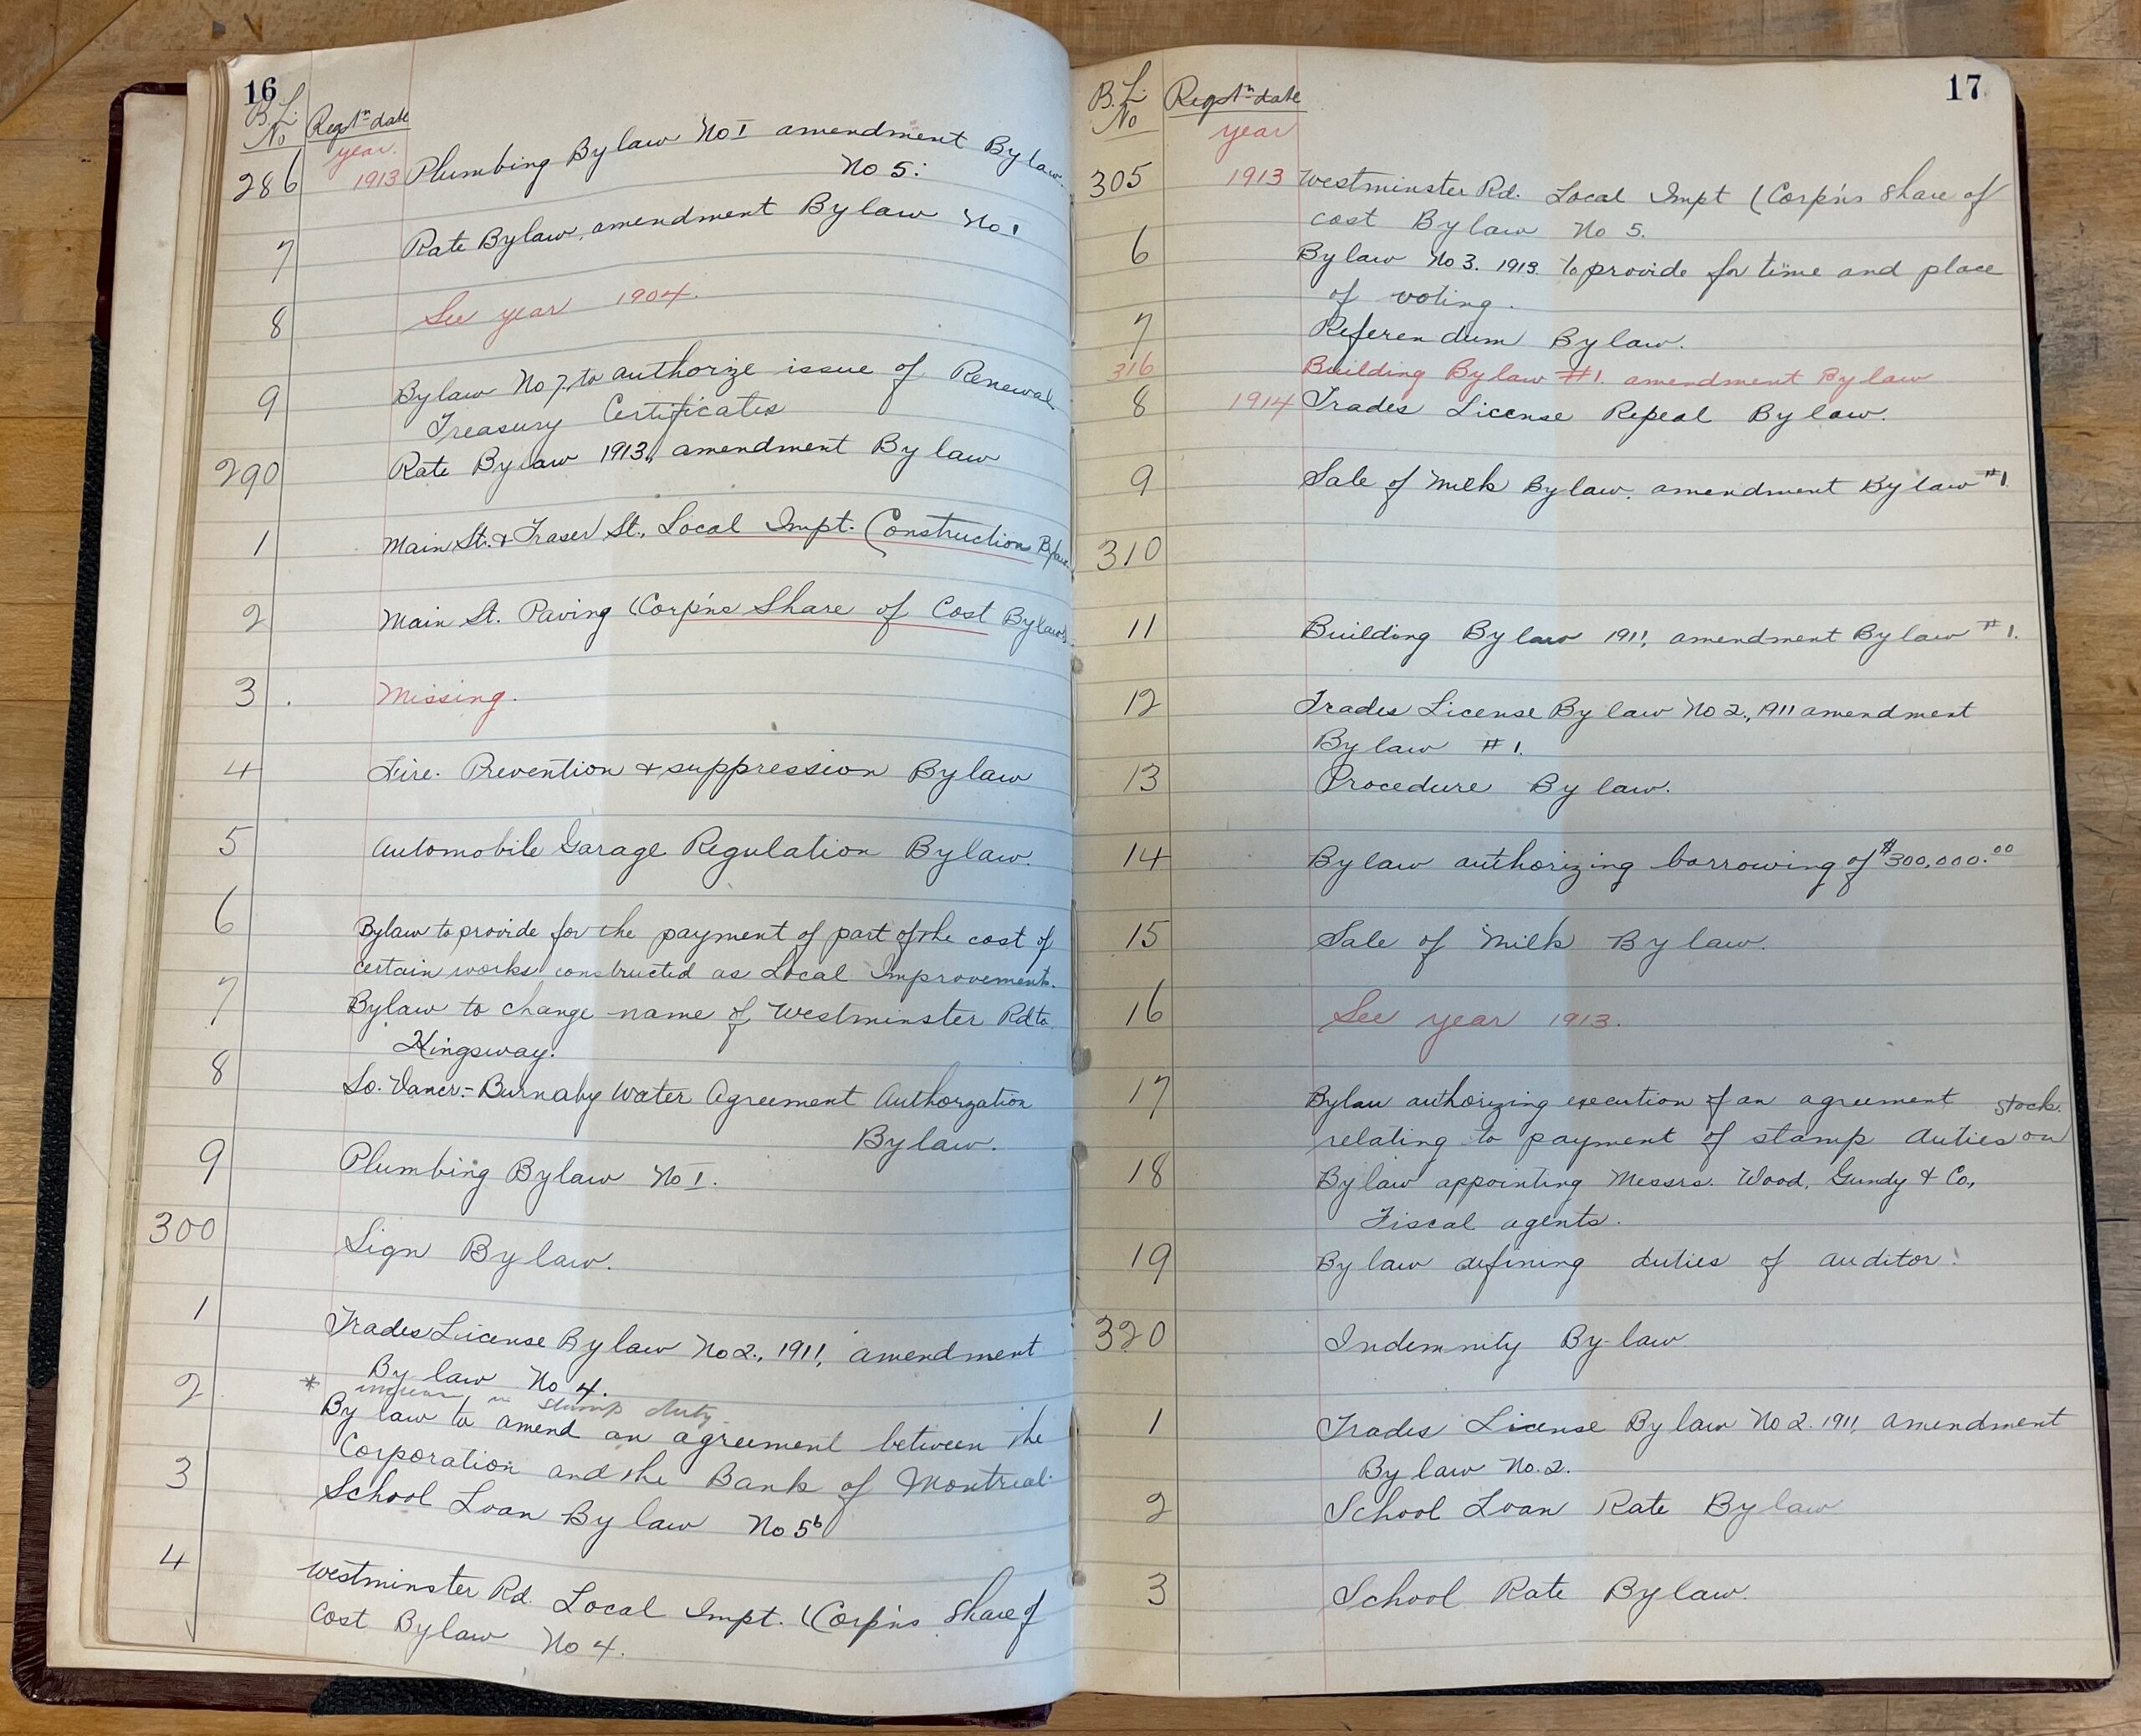 16
B.L. No Regtn date
year.
286 1913 Plumbing Bylaw No I amendment Bylaw
No 5.
7 Rate Bylaw, amendment Bylaw No 1
8 See year 1904.
9 Bylaw No 7, to authorize issue of Renewal
Treasury Certificates
290 Rate Bylaw 1913, amendment By law
1 Main St. & Fraser St., Local Impt. (Construction Bylaw
2 Main St. Paving (Corp'ns Share of Cost Bylaw
3 Missing.
4 Fire Prevention & suppression Bylaw
5 Automobile Garage Regulation Bylaw.
6 Bylaw to provide for the payment of part of the cost of
certain works constructed as Local Improvements.
7 Bylaw to change name of Westminster Rd to
Kingsway.
8 So. Vancr.- Burnaby Water Agreement Authorzation
Bylaw.
9 Plumbing Bylaw No I.
300 Sign By law.
1 Trades License By law No 2., 1911, amendment
By law No 4.
* stamp duty
2 By law to amend an agreement between the
Corporation and the Bank of Montreal
3 School Loan By law No 5b
4 Westminster Rd. Local Impt. (Corp'ns Share of
Cost Bylaw No 4.
17
B.L. No Regtn date
year
305 1913 Westminster Rd. Local Impt (Corp'ns Share of
cost Bylaw No 5.
6 By law No 3. 1913. to provide for time and place
of voting.
7 Referendum By law.
316 Building By law #1. amendment By law
8 1914 Trades License Repeal By law.
9 Sale of Milk By law. amendment By law #1.
310
11 Building By law 1911, amendment By law #1.
12 Trades License By law No 2., 1911 amendment
By law #1.
13 Procedure By law.
14 By law authorizing borrowing of $300,000.00
15 Sale of Milk By law.
16 See year 1913.
17 Bylaw authorizing execution of an agreement stock
relating to payment of stamp duties on
18 By law appointing Messrs. Wood, Gundy & Co,
Fiscal agents.
19 By law defining duties of auditor.
320 Indemnity By-law
1 Trades License By law No 2. 1911, amendment
By law No. 2.
2 School Loan Rate By law
3 School Rate By law.